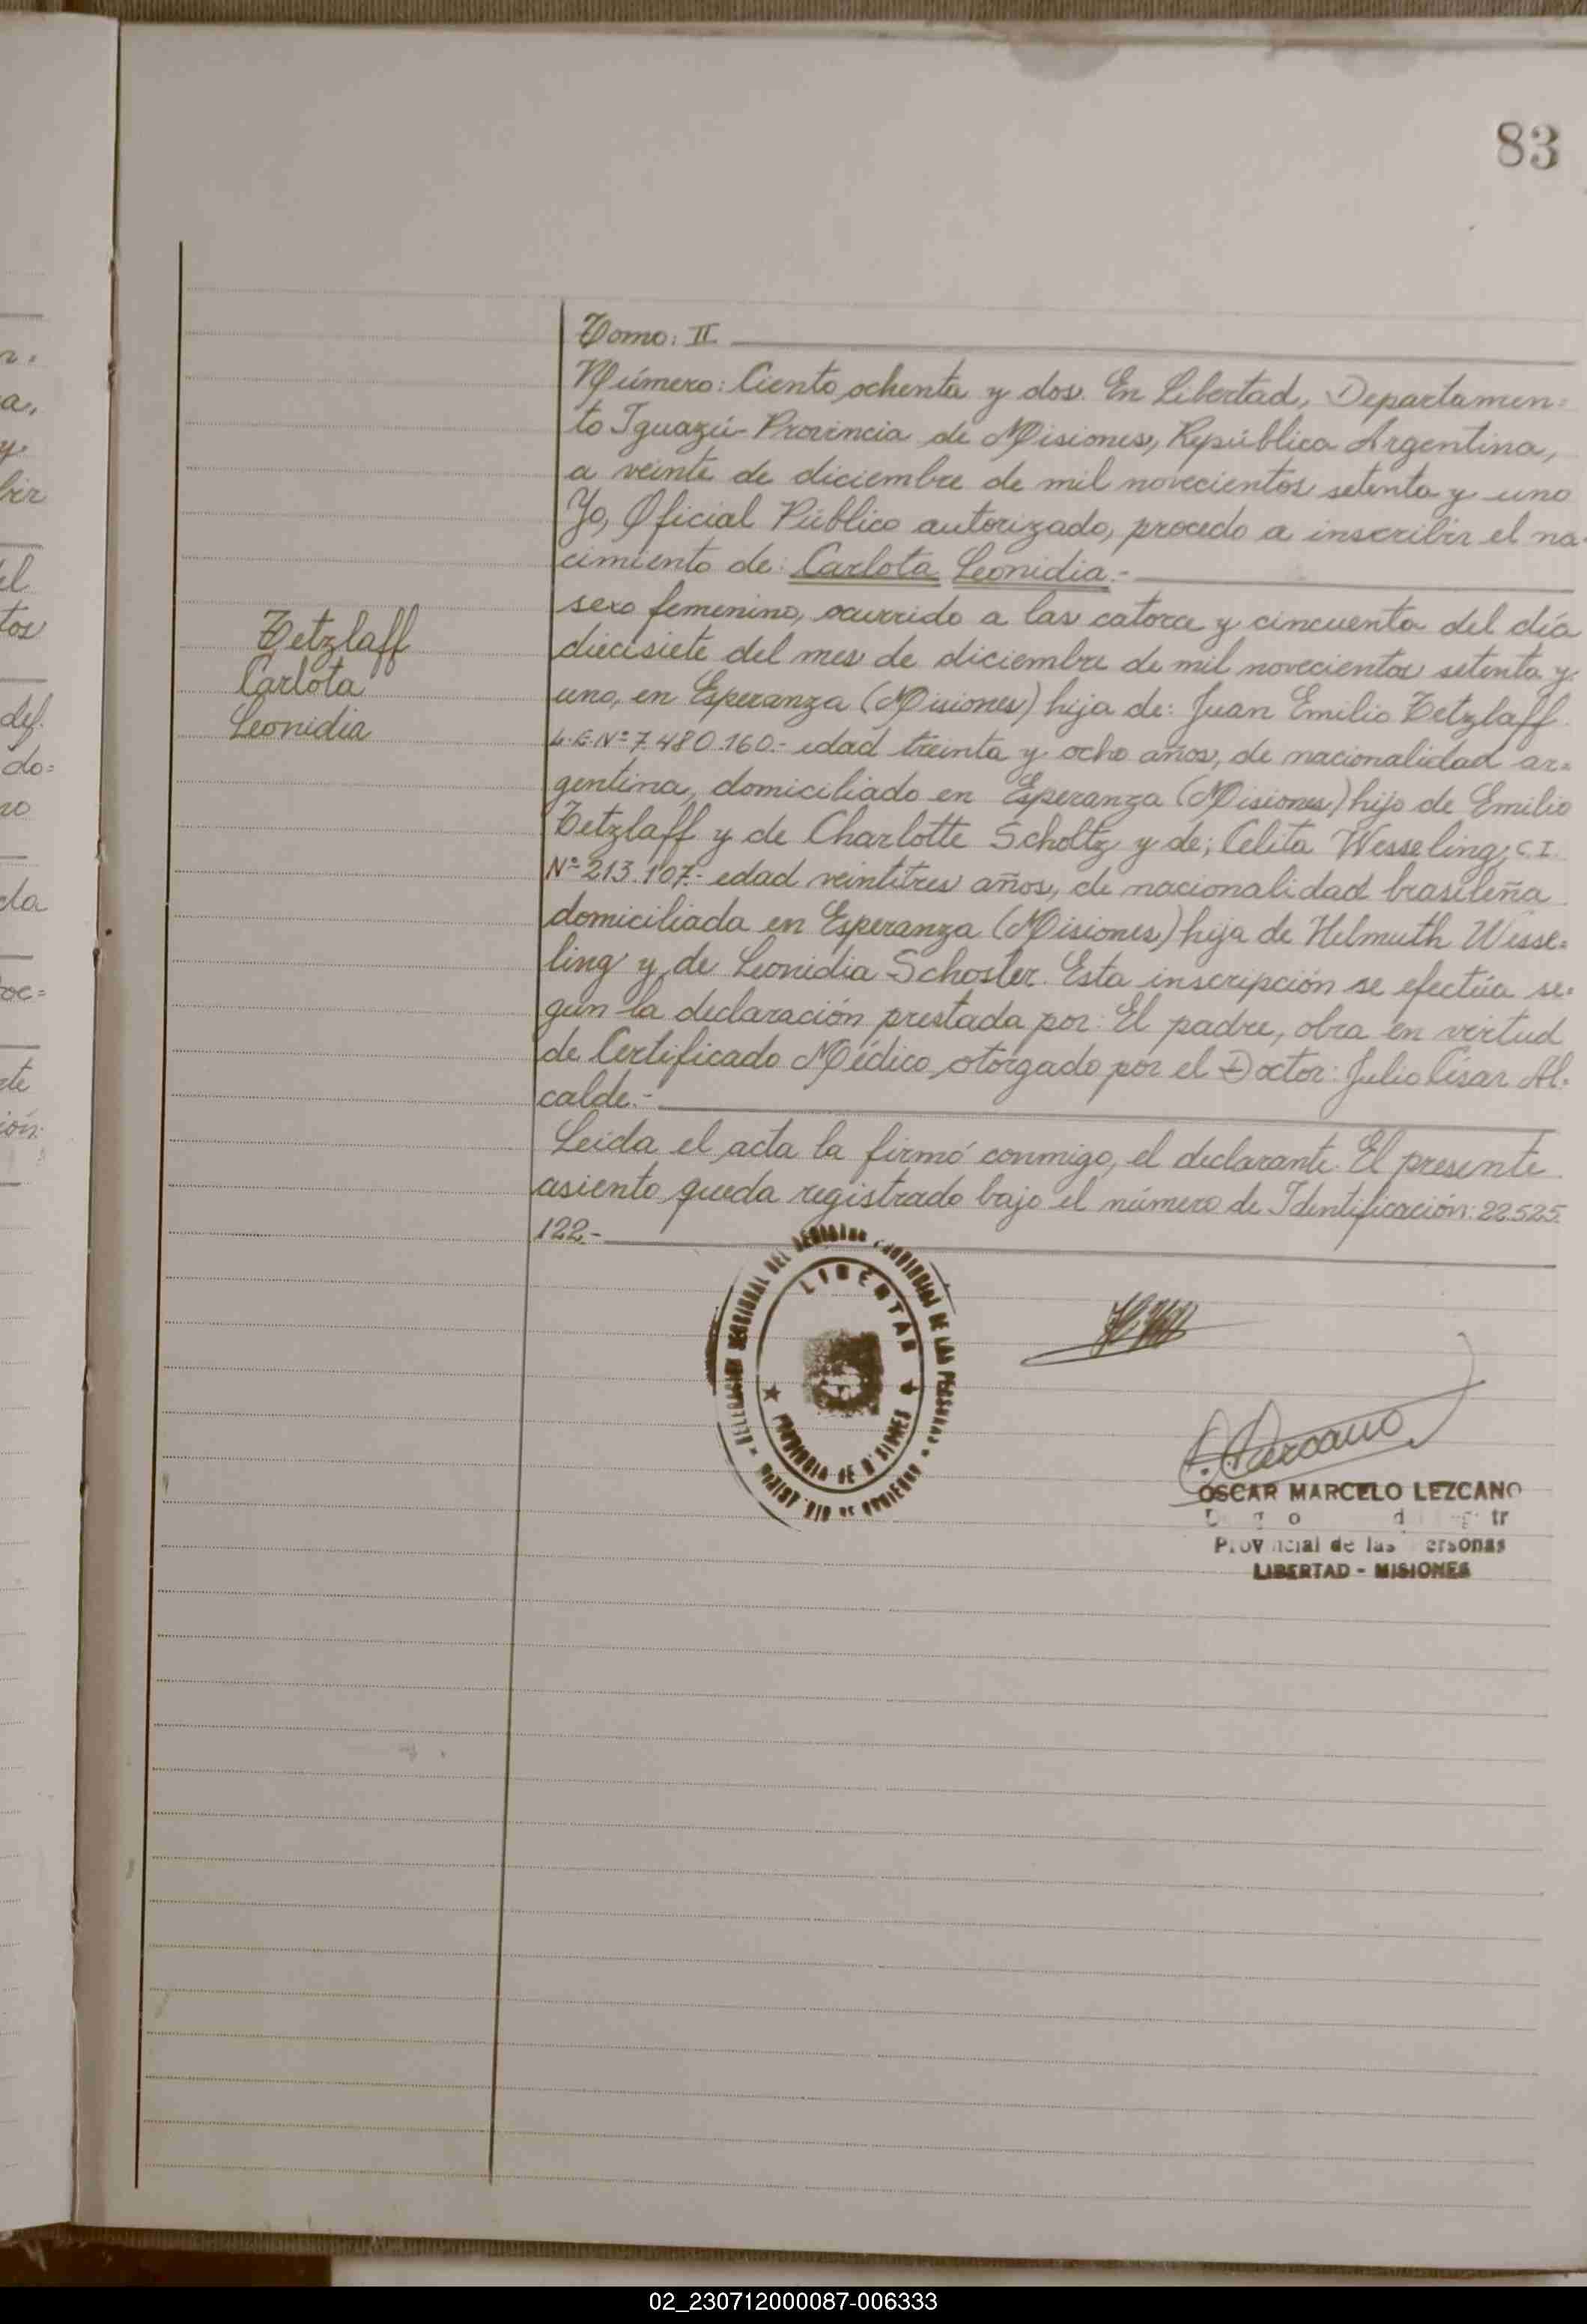 83
Tomo: II
Número: Ciento ochenta y dos. En Libertad, Departamen=
to Iguazú - Provincia de Misiones, República Argentina,
a veinte de diciembre de mil novecientos setenta y uno
Yo, Oficial Público autorizado, procedo a inscribir el na=
cimiento de: Carlota Leonidia.-
sexo femenino, ocurrido a las catorce y cincuenta del día
diecisiete del mes de diciembre de mil novecientos setenta y
uno, en Esperanza (Misiones) hija de: Juan Emilio Tetzlaff
L.E. Nº 7.480.160.- edad treinta y ocho años, de nacionalidad ar=
gentina, domiciliado en Esperanza (Misiones) hijo de Emilio
Tetzlaff y de Charlotte Scholtz y de; Celita Wesseling, C.I.
Nº 213.107.- edad veintitres años, de nacionalidad brasileña
domiciliada en Esperanza (Misiones) hija de Helmuth Wesse=
ling y de Leonidia Schoster. Esta inscripción se efectúa se=
gún la declaración prestada por: El padre, obra en virtud
de Certificado Médico, otorgado por el Doctor: Julio César Al=
calde.-
Leida el acta la firmó conmigo, el declarante. El presente
asiento queda registrado bajo el número de Identificación: 22.525.
122.-
Tetzlaff
Carlota
Leonidia
LIBERTAD
PROVINCIA DE MISIONES
OSCAR MARCELO LEZCANO
Provincial de las Personas
LIBERTAD - MISIONES
02_230712000087-006333